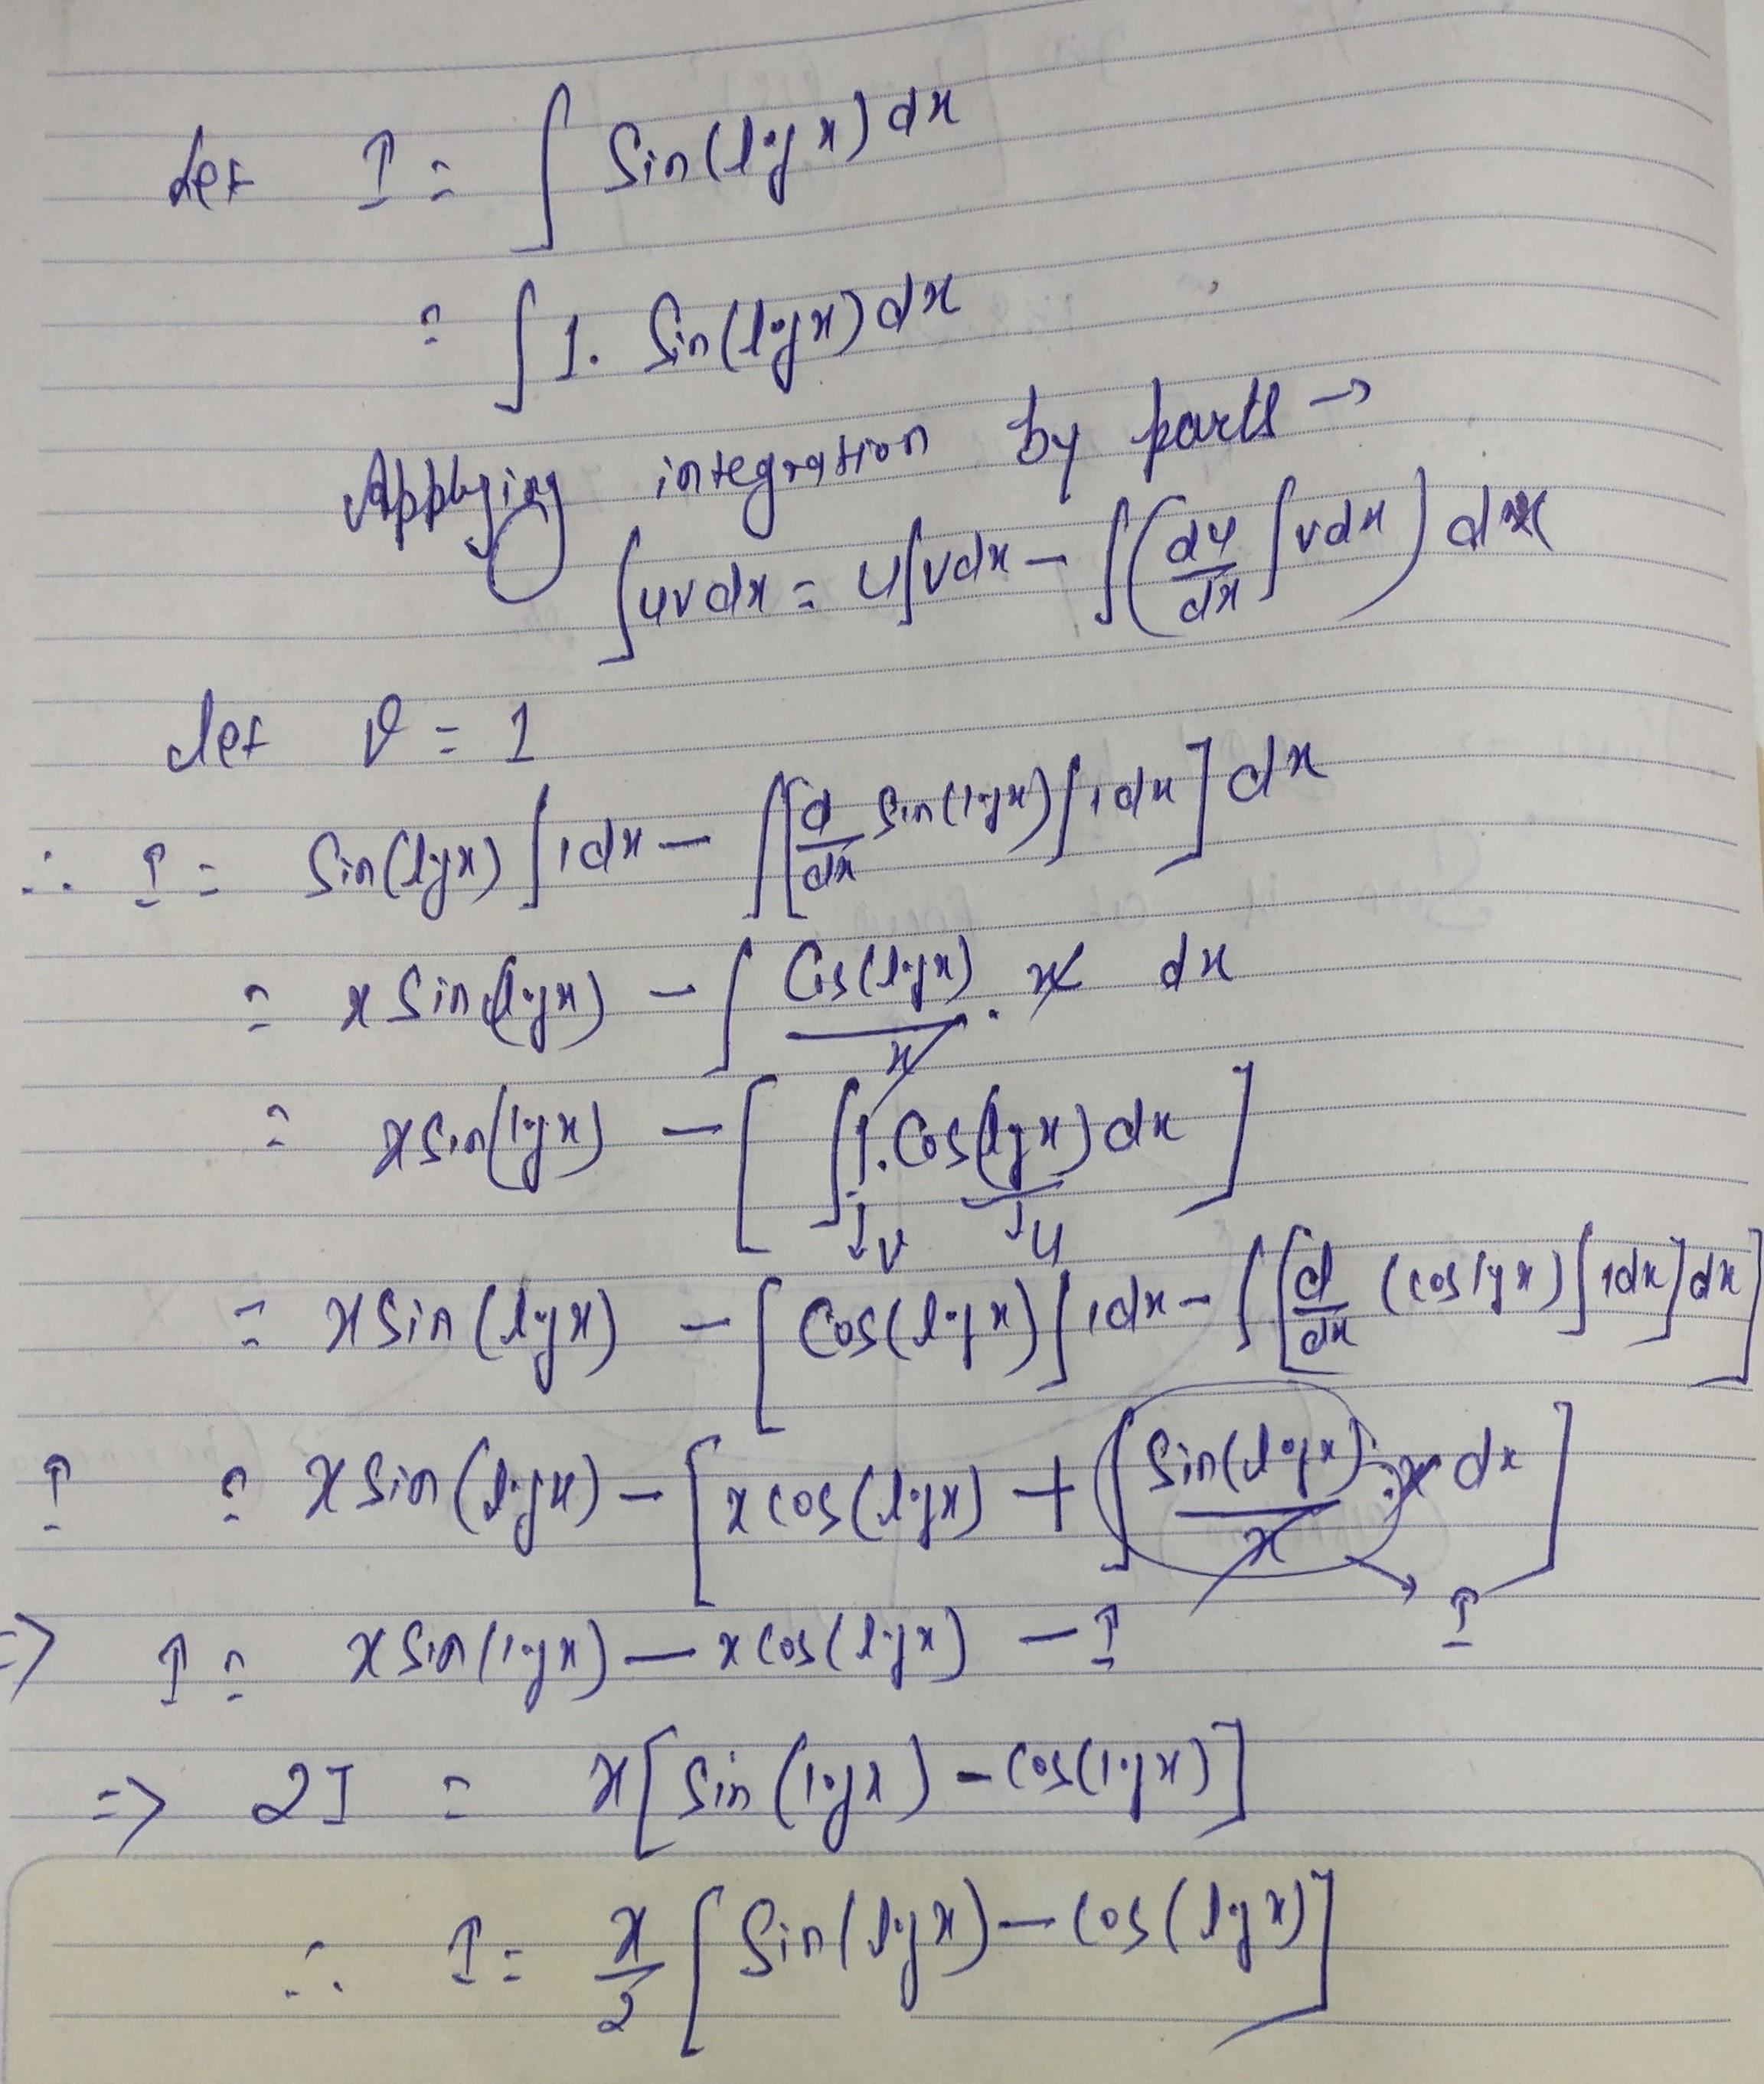 Let I = ∫ Sin(log x) dx
= ∫ 1. Sin(log x) dx
Applying integration by parts →
∫uv dx = u∫v dx − ∫(du/dx ∫v dx) dx
Let v = 1
∴ I = Sin(log x) ∫1 dx − ∫[d/dx Sin(log x) ∫1 dx] dx
= x Sin(log x) − ∫ Cos(log x)/x . x dx
= x Sin(log x) − [∫1. Cos(log x) dx]
↓v ↓u
= x Sin(log x) − [Cos(log x) ∫1 dx − ∫[d/dx (cos log x) ∫1 dx] dx]
I = x Sin(log x) − [x cos(log x) + ∫ Sin(log x)/x . x dx]
→ I
⇒ I = x Sin(log x) − x cos(log x) − I
⇒ 2I = x[Sin(log x) − cos(log x)]
∴ I = x/2 [Sin(log x) − cos(log x)]